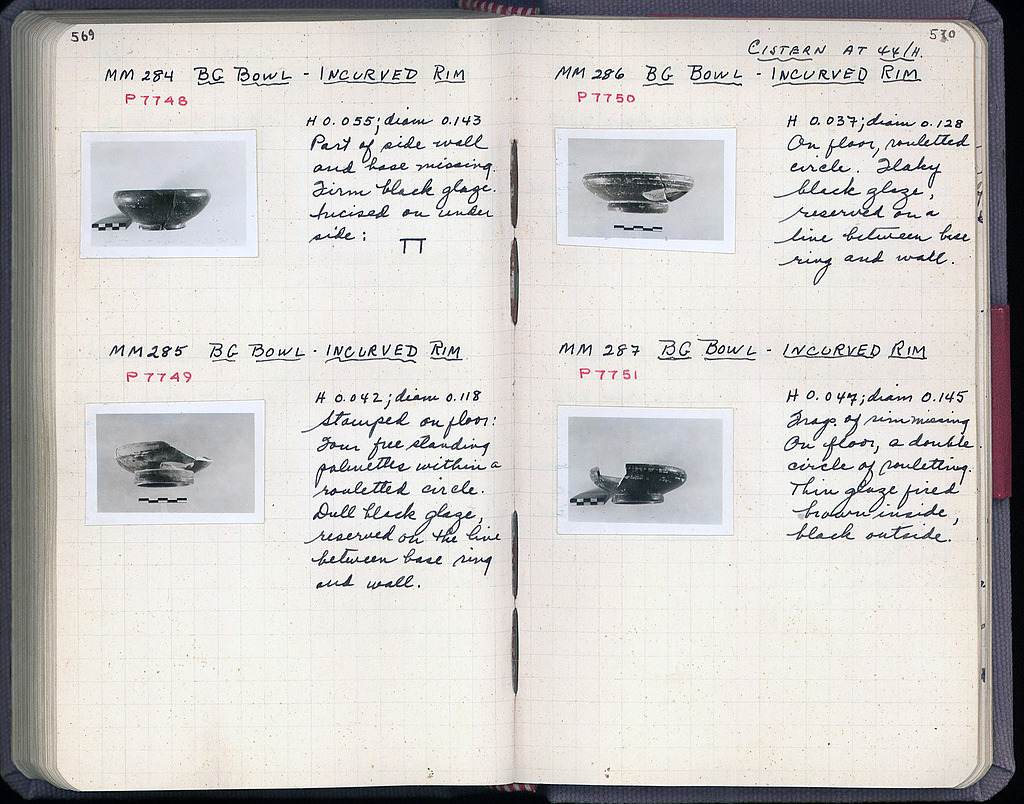 569
MM 284 BG BOWL - INCURVED RIM
P 7748
H 0.055; diam 0.143
Part of side wall
and base missing.
Firm black glaze.
Incised on under
side:
MM 285 BG BOWL - INCURVED RIM
P 7749
H 0.042; diam 0.118
Stamped on floor:
Four free standing
palmettes within a
rouletted circle.
Dull black glaze,
reserved on the line
between base ring
and wall.
570
CISTERN AT 44/H.
MM 286 BG BOWL - INCURVED RIM
P 7750
H 0.037; diam 0.128
On floor, rouletted
circle. Flaky
black glaze,
reserved on a
line between base
ring and wall.
MM 287 BG BOWL - INCURVED RIM
P 7751
H 0.047; diam 0.145
Frag. of rim missing
On floor, a double
circle of rouletting.
Thin glaze fired
brown inside,
black outside.